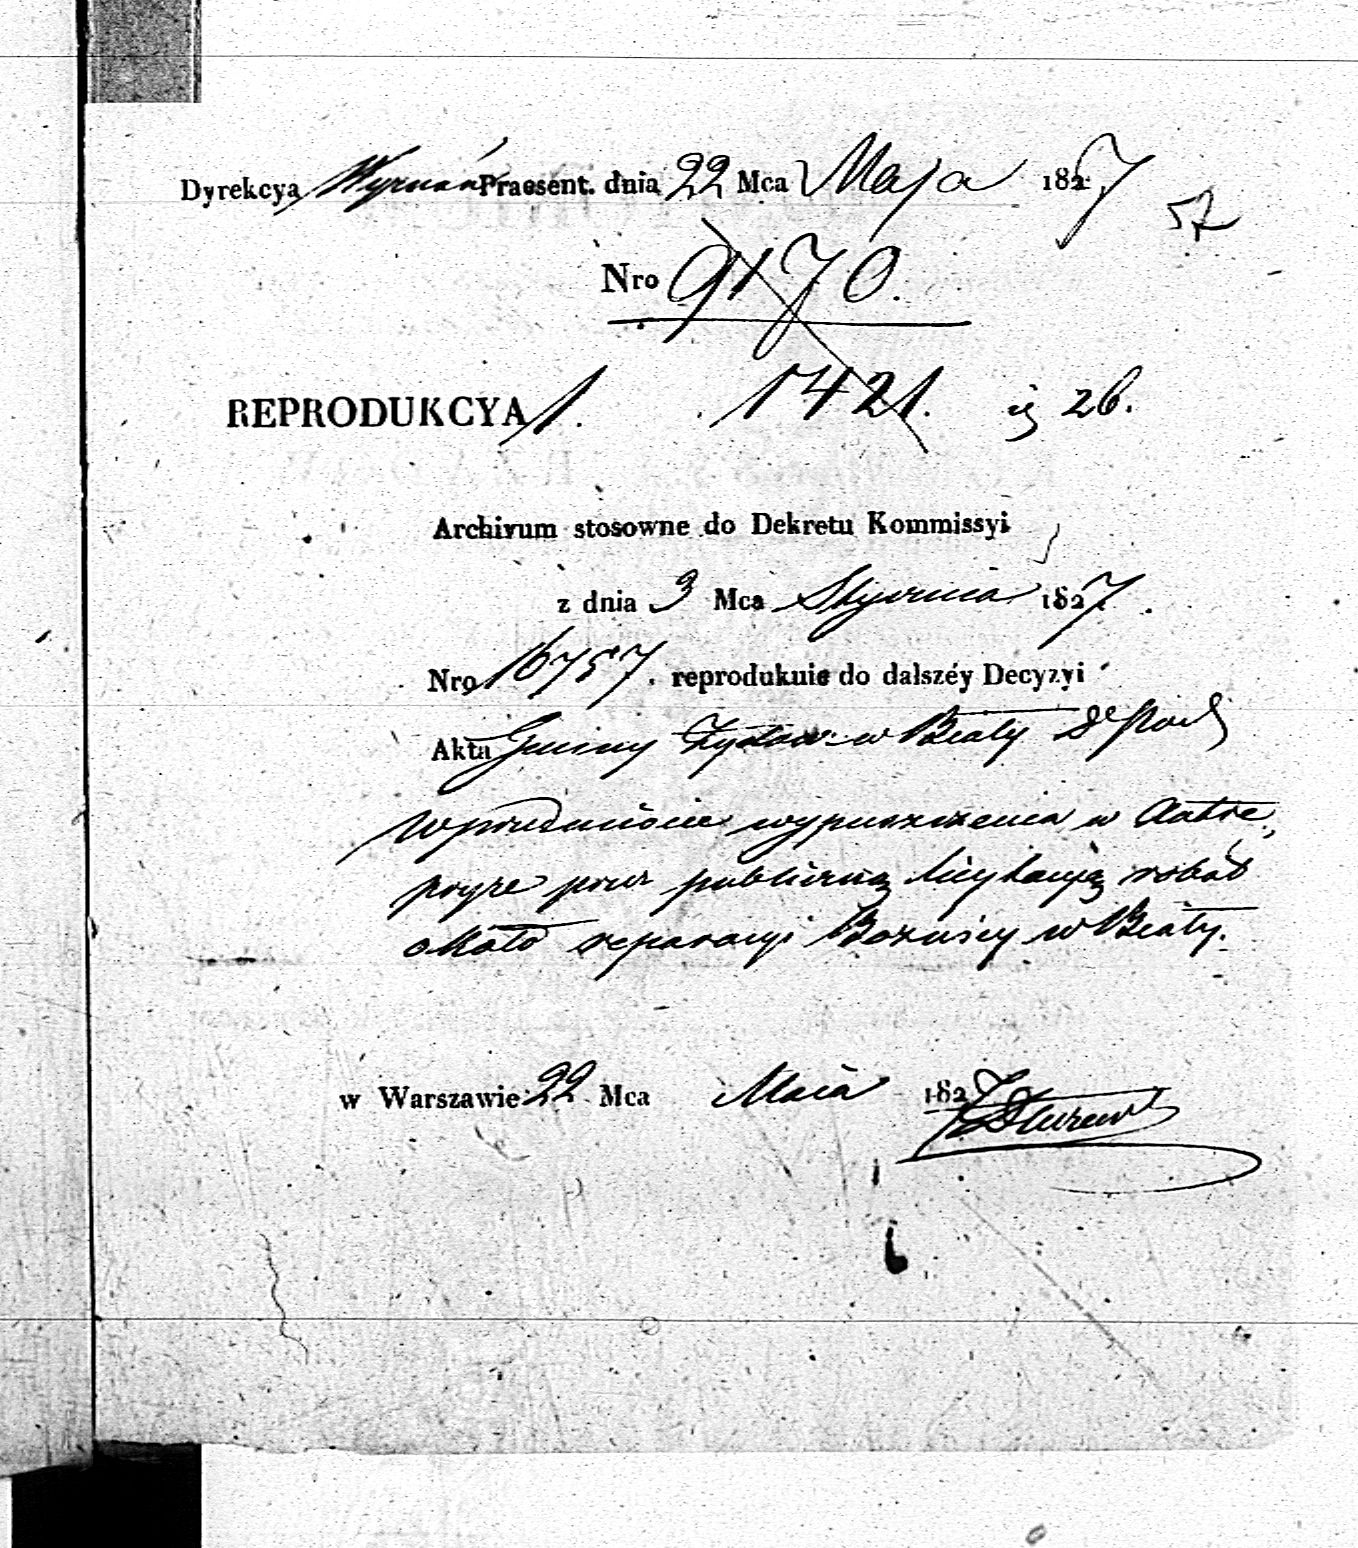 Dyrekcya Wyznań Praesent. dnia 22 Mca Maja 1827
57
Nro 9170.
REPRODUKCYA 1. 1421. 26.
Archivum stosowne do Dekretu Kommissyi
z dnia 3 Mca Stycznia 1827.
Nro 16757. reprodukuie do dalszéy Decyzyi
Akta Gminy Żydow: w Biały
w przedmiocie wypuszczenia w Antre,
pryze przez publiczną licytacyą robót
około reparacyi Bożnicy w Biały.
w Warszawie 22 Mca Maia 1827